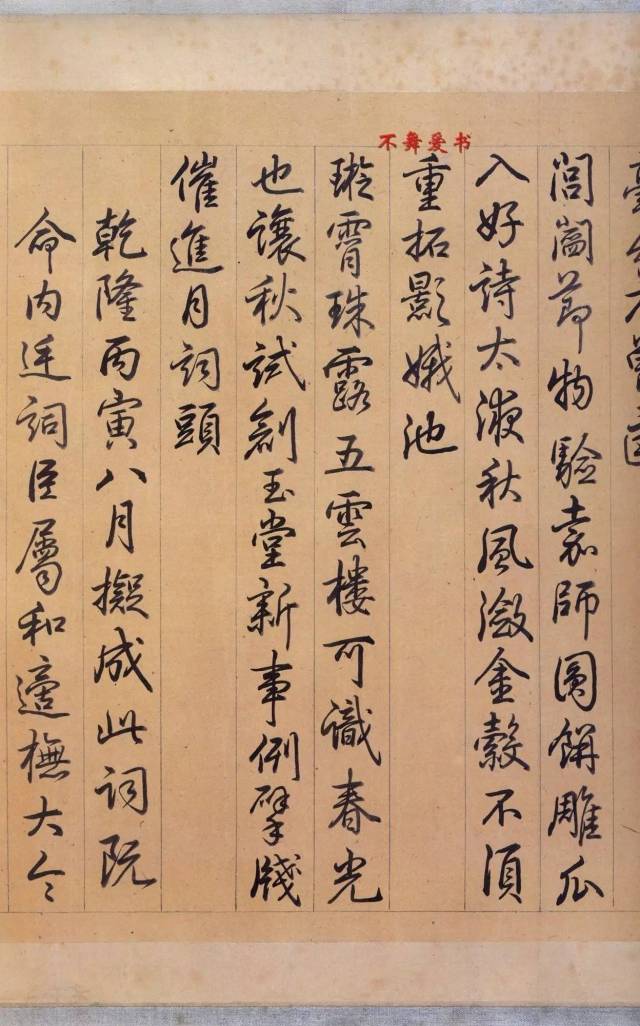 不舞爱书
閭閻節物驗師圓餅雕瓜
入好詩太液秋風瀲金縠不須
重拓影娥池
璇霄珠露五雲樓可識春光
也讓秋試創玉堂新事例擘牋
催進月詞頭
乾隆丙寅八月擬成此詞既
命内廷詞臣屬和適橅大令